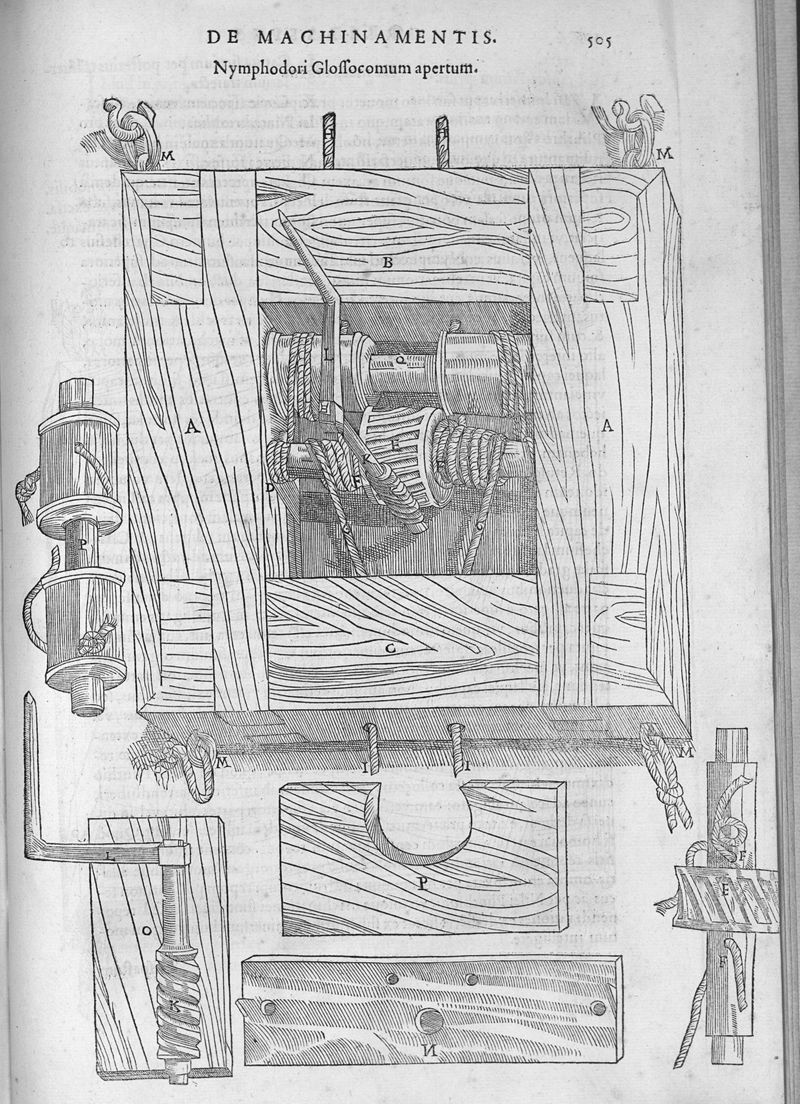 DE MACHINAMENTIS. 505
Nymphodori Gloſſocomum apertum.
M H H M
B
L Q
A E A
K
D F F
G G
P
C
M I I M
L
P
F
E
O
F
K
N